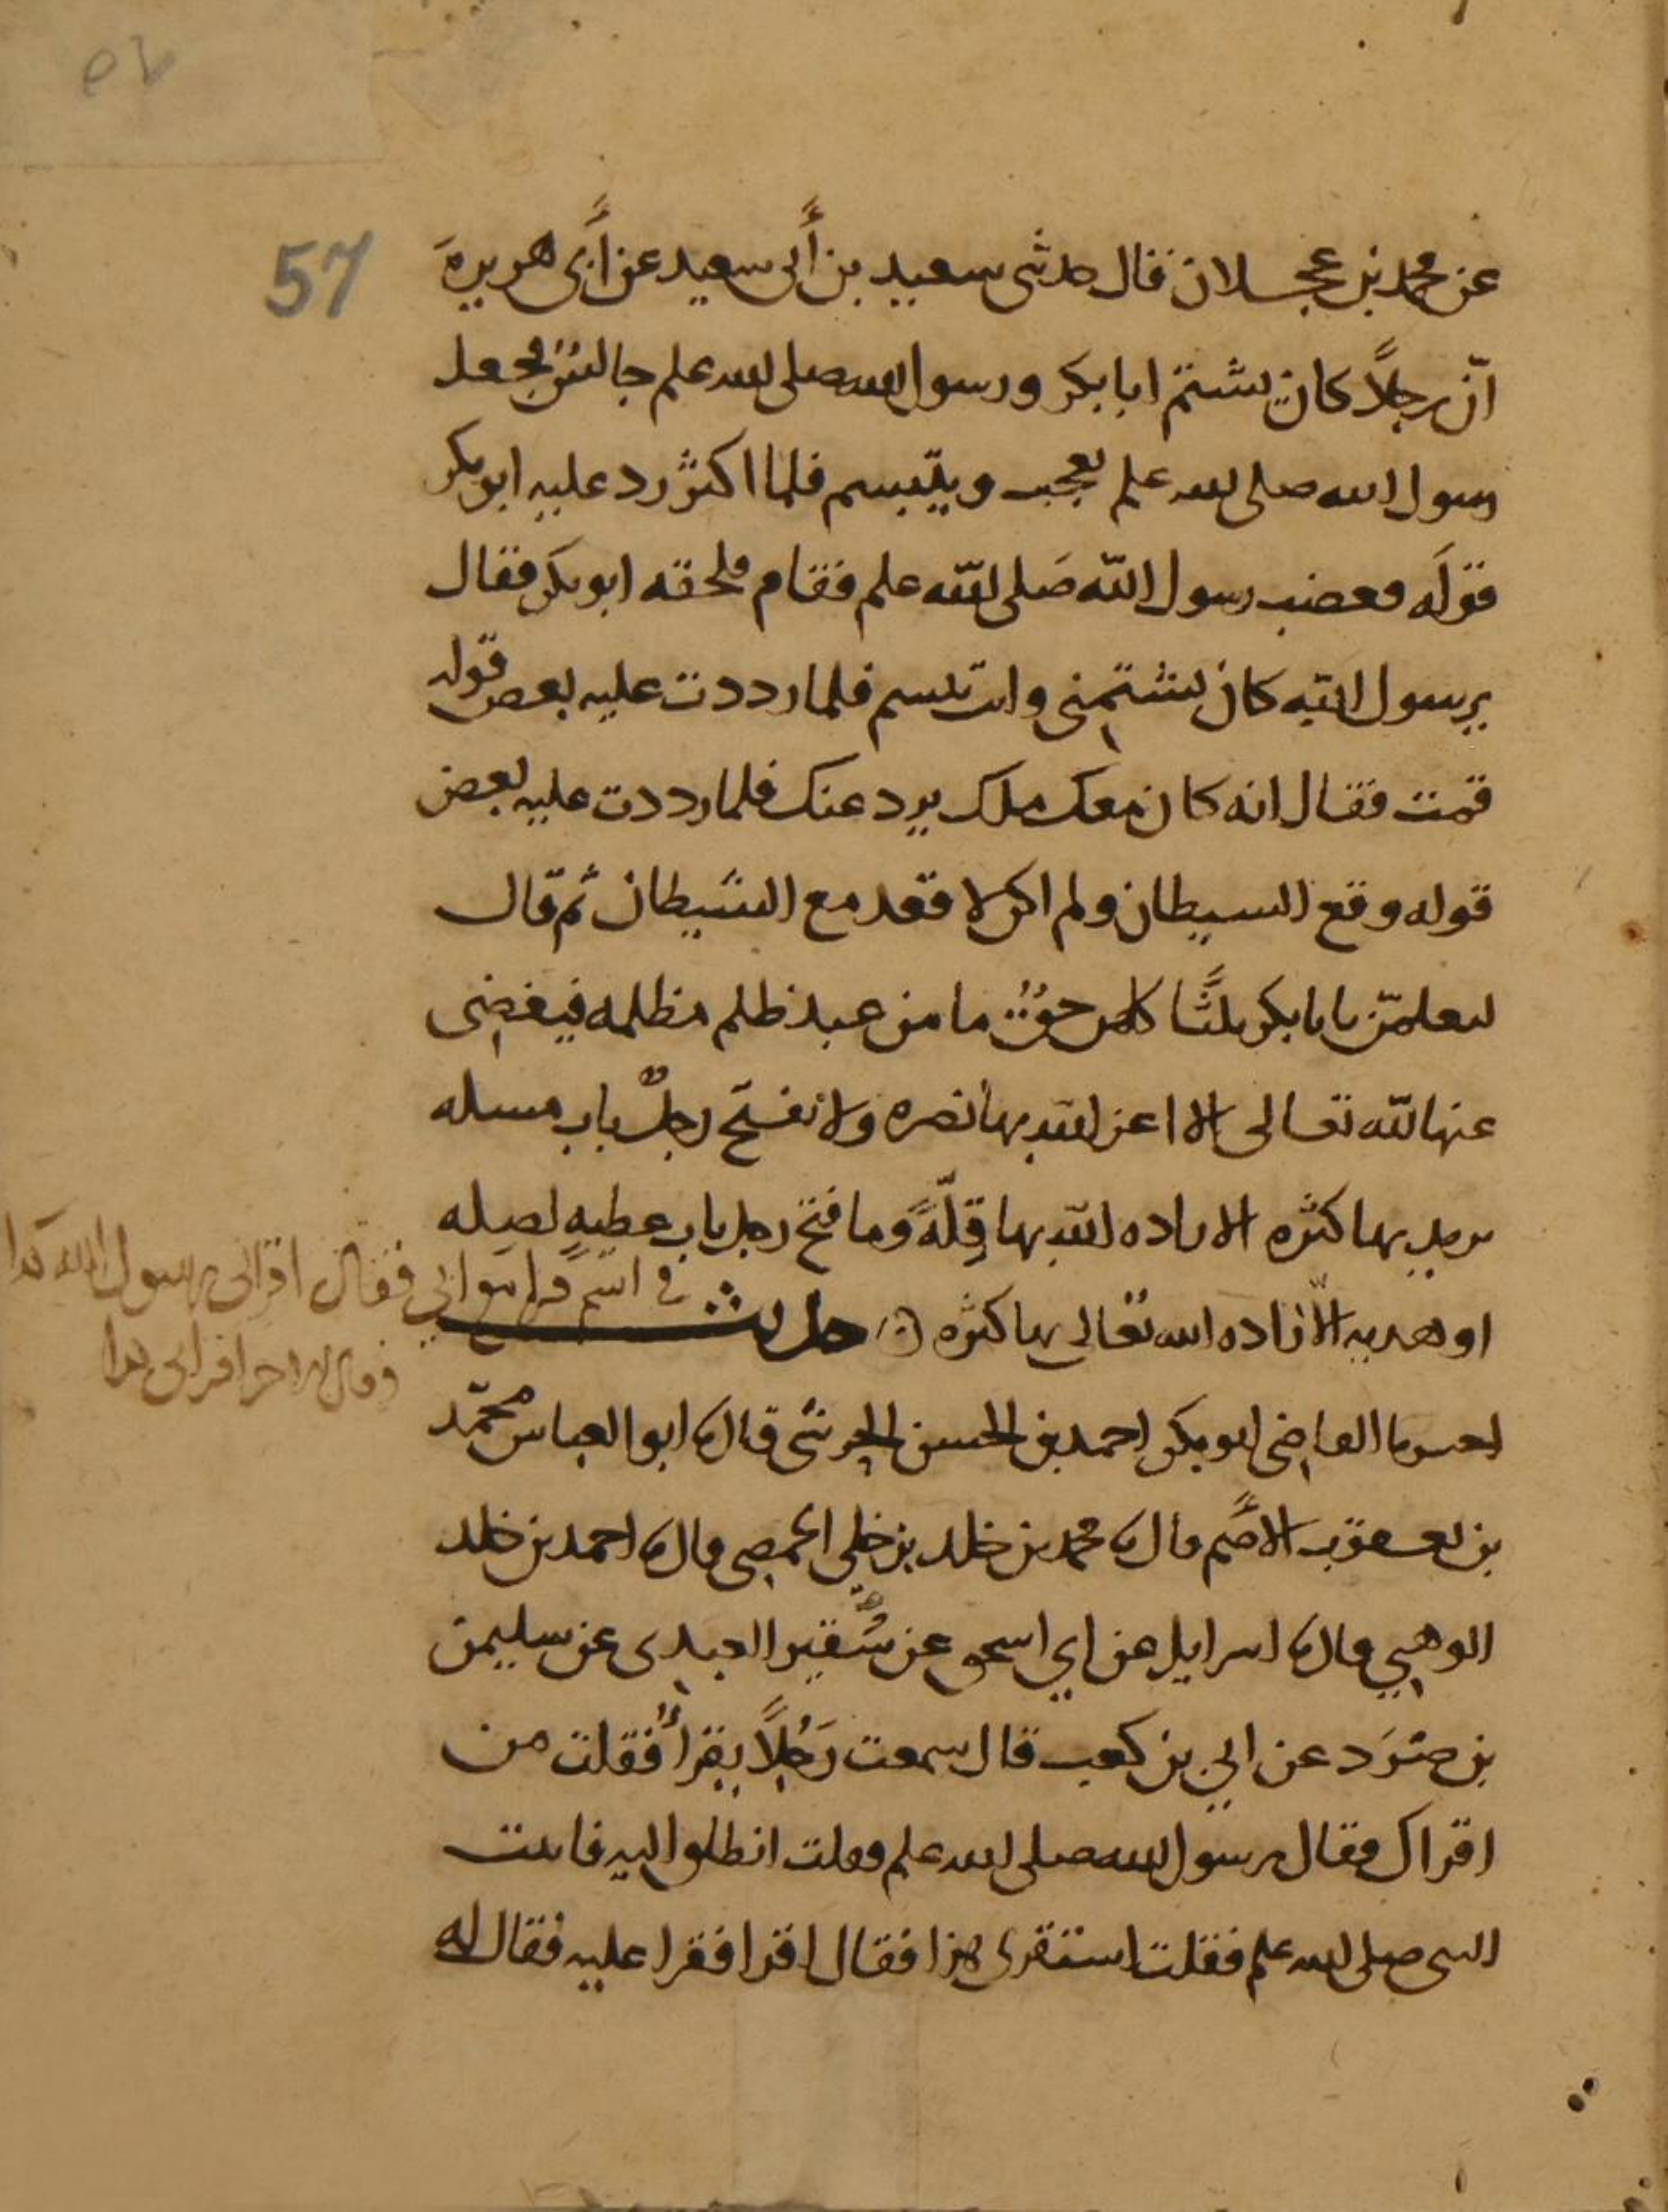 57
عن محمد بن عجلان قال حدثني سعيد بن أبي سعيد عن أبي هريرة
أنّ رجلاً كان يشتم ابا بكر ورسول الله صلى الله علم جالسٌ فجعل
رسول الله صلى الله علم يعجب ويتبسم فلما اكثر رد عليه ابو بكر
قوله فغضب رسول الله صلى الله علم فقام فلحقه ابو بكر فقال
يرسول الله كان يشتمني وانت تبسم فلما رددت عليه بعض قوله
قمت فقال انه كان معك ملك يرد عنك فلما رددت عليه بعض
قوله وقع الشيطان ولم اكن لاقعد مع الشيطان ثم قال
لتعلمنّ يابا بكر ثلثًا كلهن حقٌ ما من عبد ظلم مظلمه فيغضي
عنها لله تعالى الا اعز الله بها نصره ولا يفتح رجلٌ باب مسله
يريد بها كثره الا زاده الله بها قلّةً وما فتح رجل باب عطيه لصله
او هديه الّا زاده الله تعالى بها كثره حديث
احبرنا القاضي ابو بكر احمد بن الحسن الجرشي قال نا ابو العباس محمّد
بن يعقوب الأصم قال نا محمد بن خلد بن خلي الحمصي قال نا احمد بن خلد
الوهبي قال نا اسرايل عن ابي اسحق عن سُقير العبدي عن سليمن
بن صرَد عن ابي بن كعب قال سمعت رَجُلاً يقرأُ فقلت من
اقراك فقال رسول الله صلى الله علم فقلت انطلق اليه فاتيت
النبي صلى الله علم فقلت استقرى هذا فقال اقرا فقرا عليه فقال له
فقال اقراني رسول الله كذا
وقال الاخر اقراني هذا